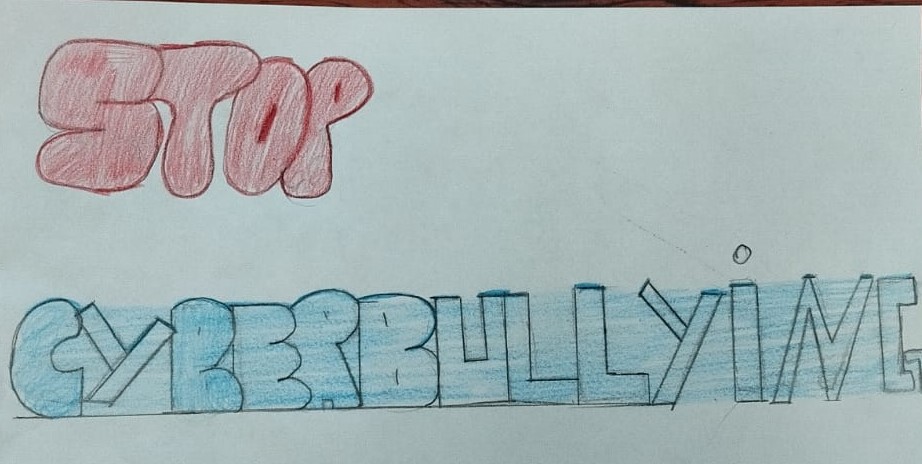 STOP
CYBERBULLYiNG